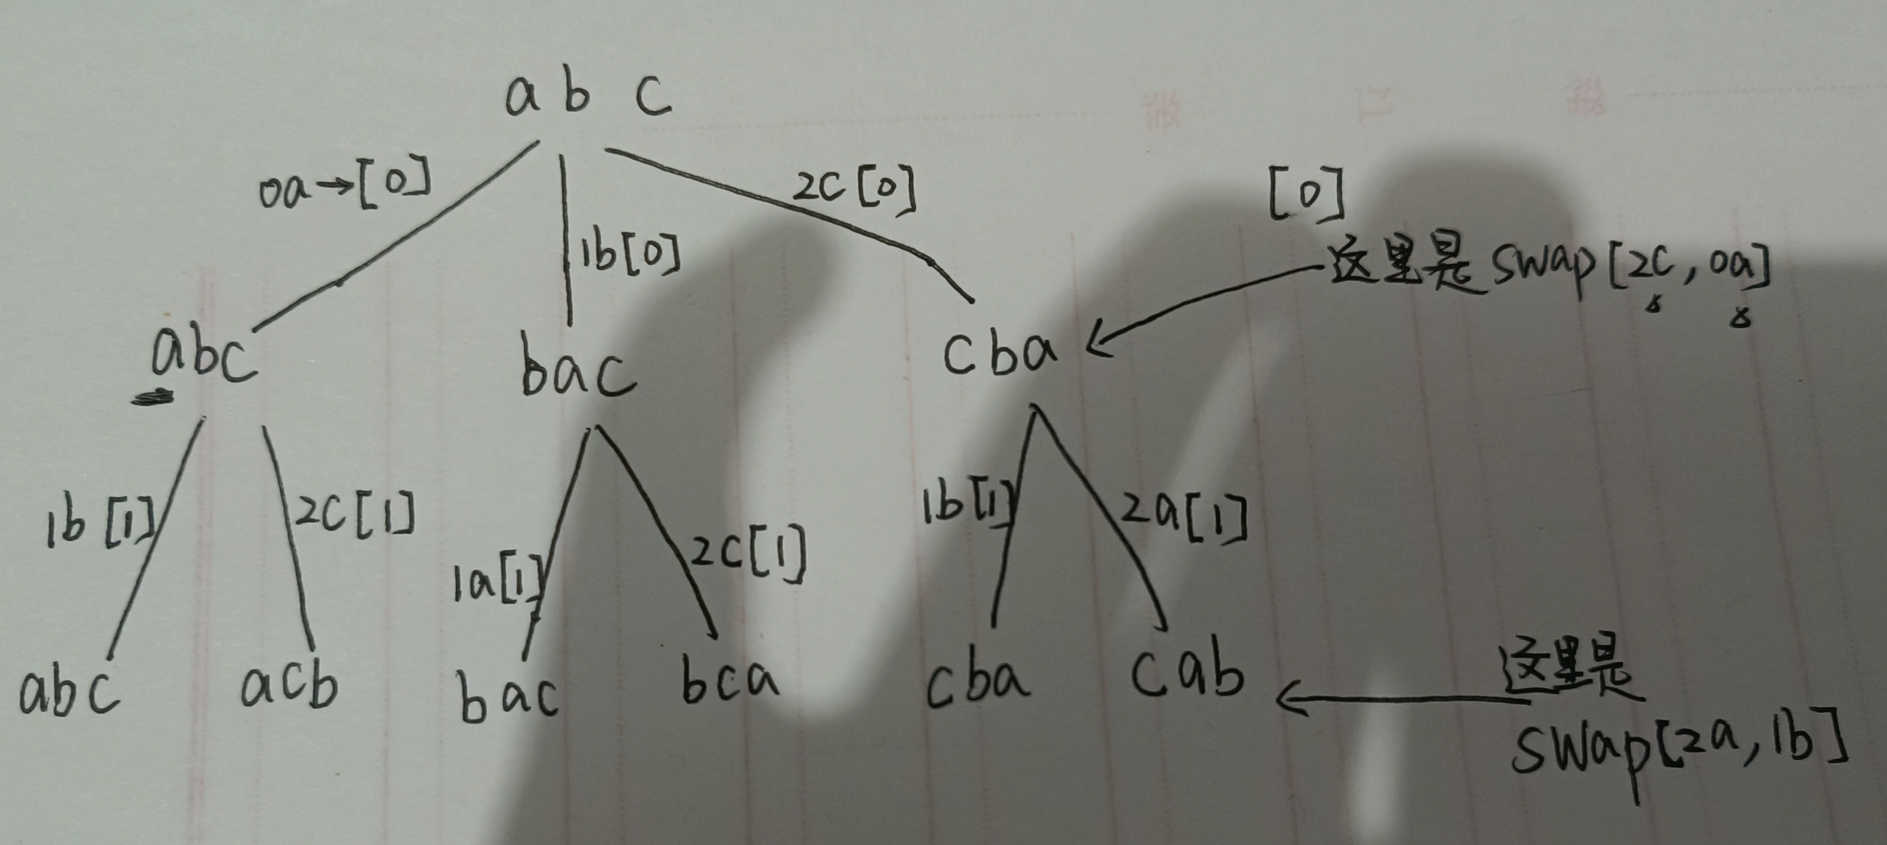 a b c
0a→[0]
1b[0]
2c[0]
[0]
这里是 swap[2c, 0a]
abc
bac
cba
1b[1]
2c[1]
1a[1]
2c[1]
1b[1]
2a[1]
abc
acb
bac
bca
cba
cab
这里是
swap[2a, 1b]